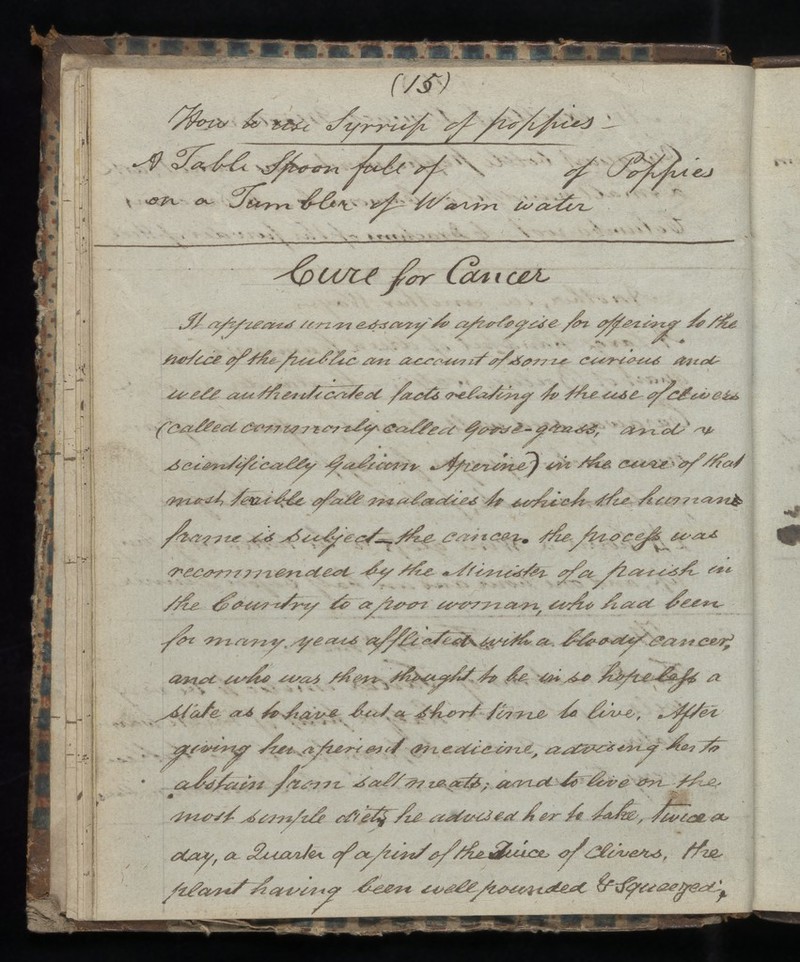 (15)
How to use Syrriip of poppies -
A Table Spoon full of of Poppies
on a Tumbler of Warm water
Cure for Cancer
It appears unnessary to apologise for offering to the
notice of the public an account of some curious and
well authenticated facts relating to the use of clivers
(called commonly called Goose-grass, and &
scientifically Galium Aperine) in the cure of that
most terible of all maladies to which the human
frame is subject - the cancer. the process was
recommended by the Minister of a parish in
the Country to a poor woman, who had been
for many years afflicted with a bloody cancer,
and who was then thought to be in so hopeless a
state as to have but a short time to live. After
giving her aperient medicine, advising her to
abstain from salt meats, and to live on the
most simple diet, he advised her to take, twice a
day, a Quarter of a pint of the Juice of Clivers, the
plant having been well pounded & Squeezed,